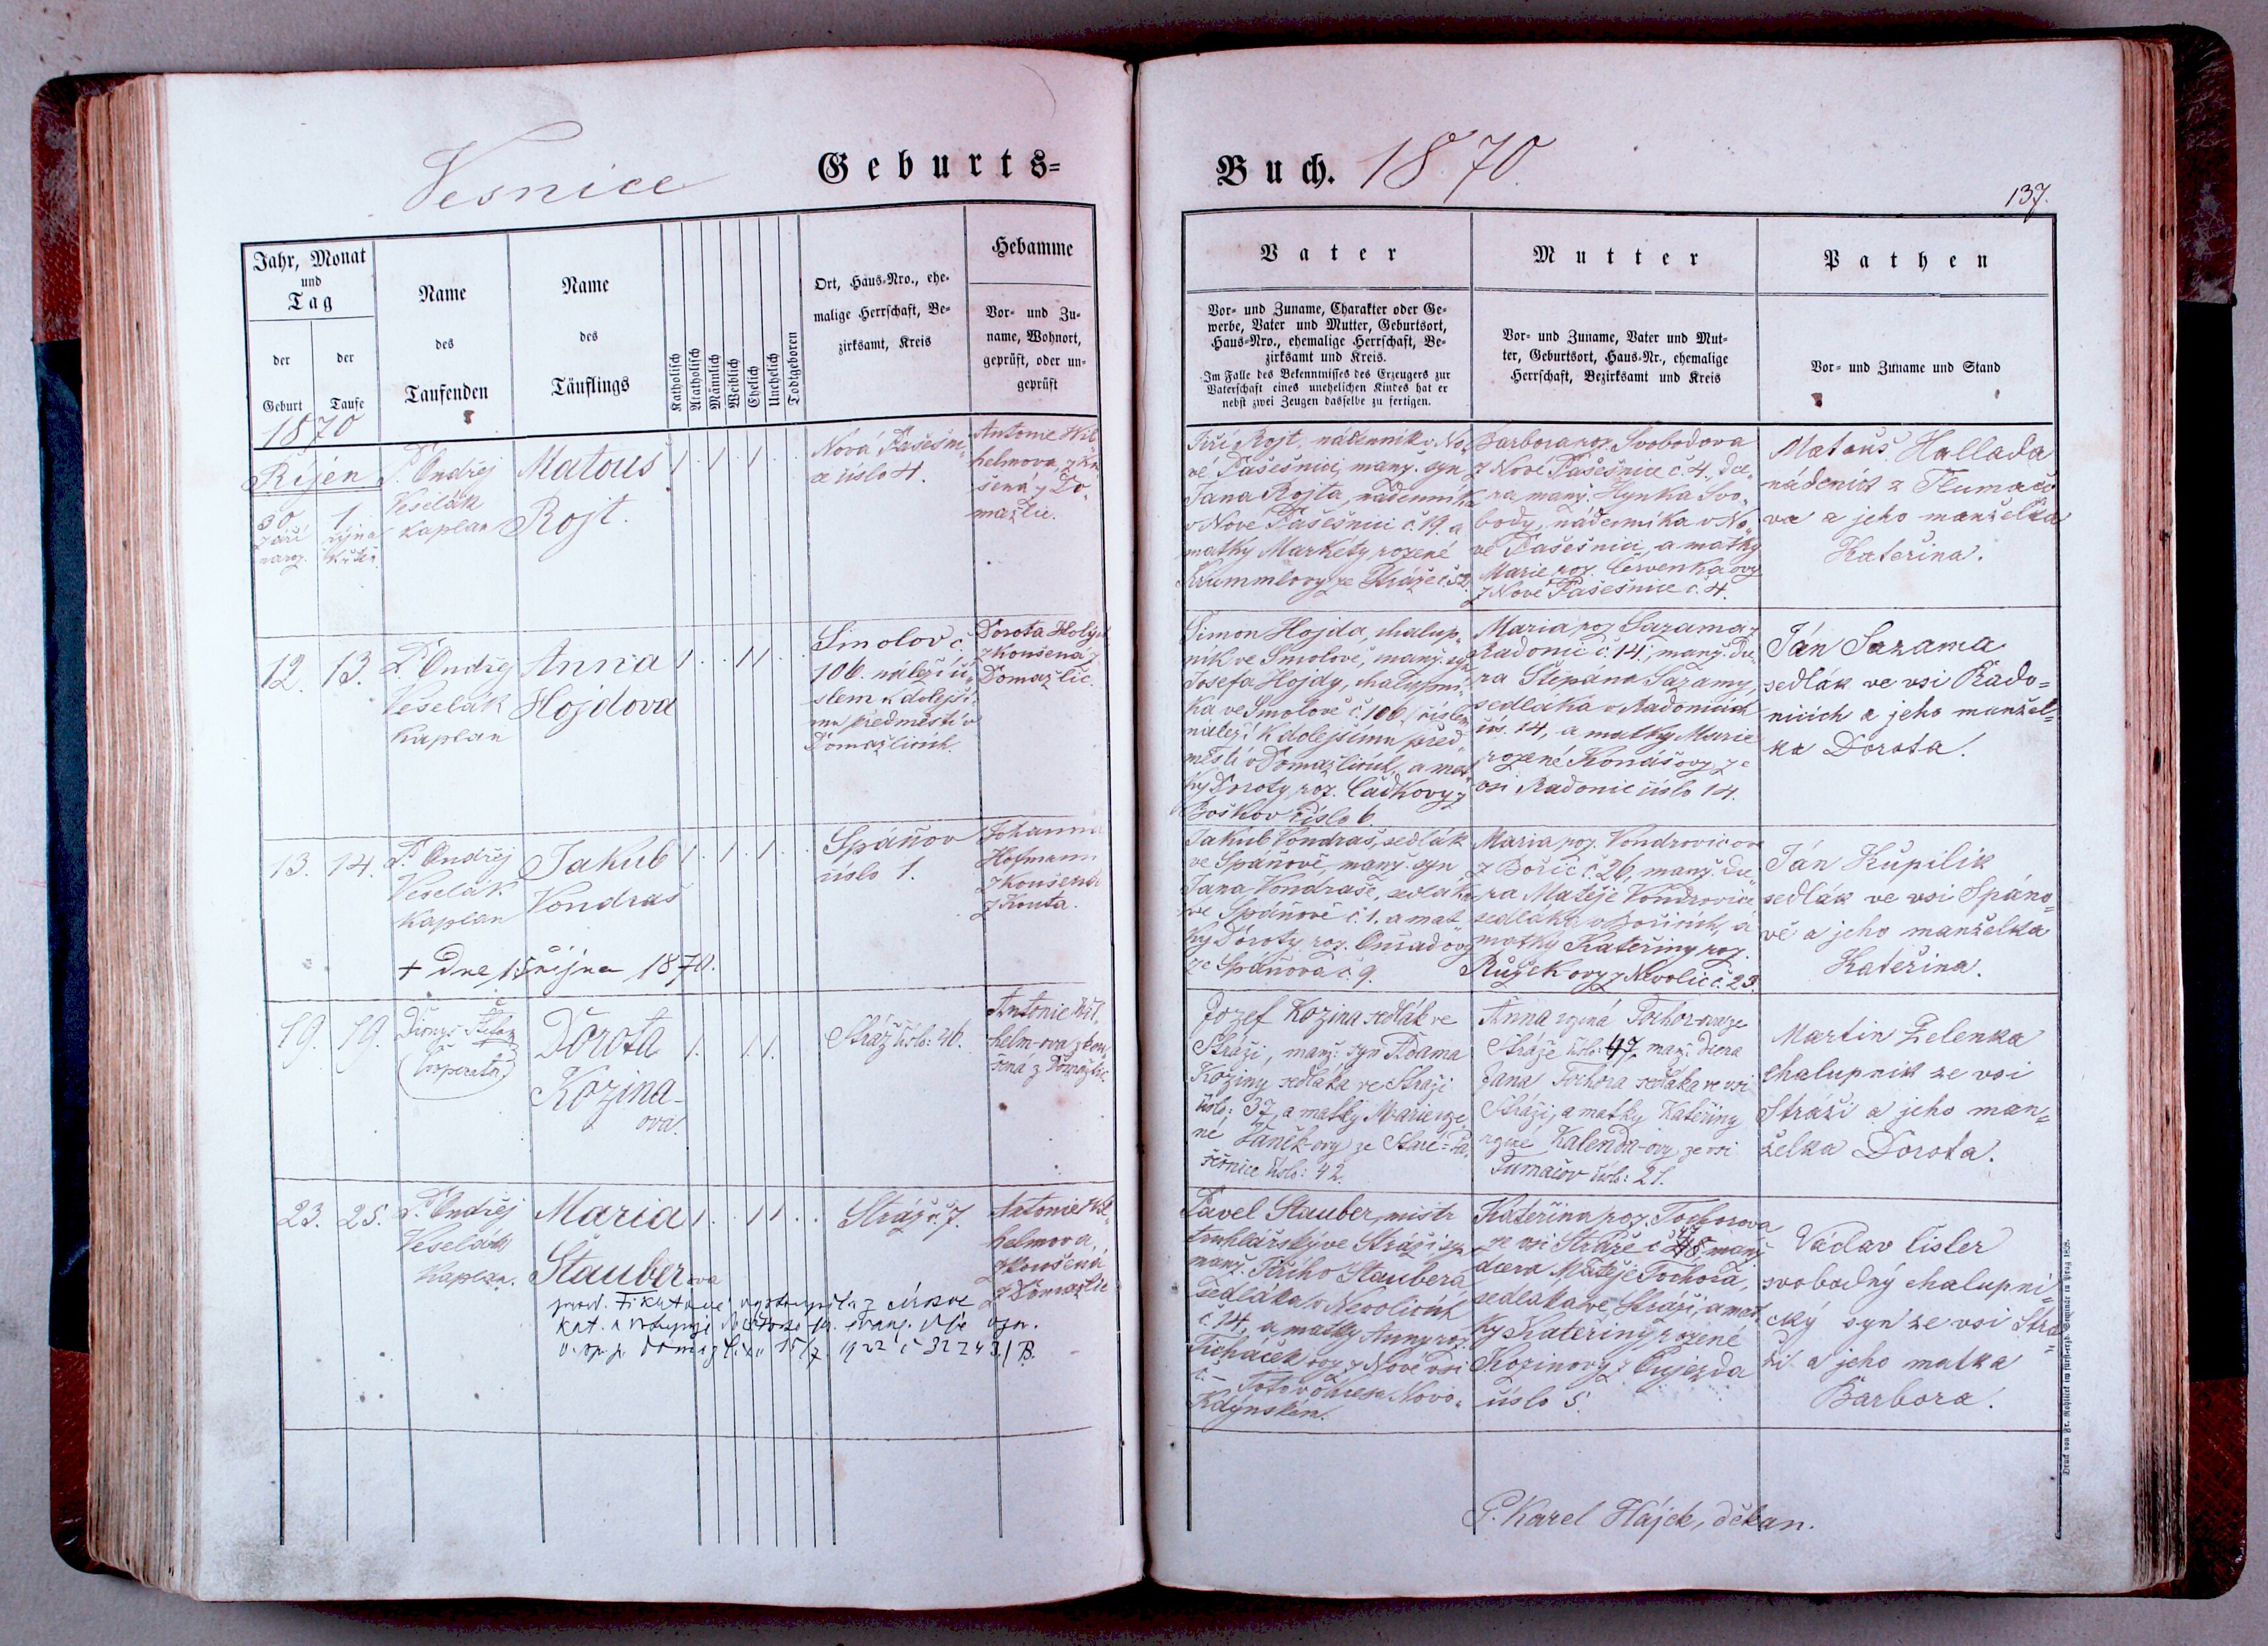 Vesnice
Geburts=
Jahr, Monat
und
Tag
der
Geburt
der
Taufe
Name
des
Taufenden
Name
des
Täuflings
Katholisch
Akatholisch
Männlich
Weiblich
Ehelich
Unehelich
Todtgeboren
Ort, Haus-Nro., ehe-
malige Herrschaft, Be-
zirksamt, Kreis
Hebamme
Vor- und Zu-
name, Wohnort,
geprüft, oder un-
geprüft
1870
Říjen
30
září
naroz.
1.
října
křtěn
P. Ondřej
Veselák
kaplan
Matouš
Rojt.
1 . 1 . 1 . .
Nová Pašešni-
ce číslo 4.
Antonie Wil
helmova, zkou
šená z Do-
mažlic.
12.
13.
P. Ondřej
Veselák
kaplan
Anna
Hojdova
1 . . 1 1 . .
Smolov č.
106. náleží čí-
slem k dolejší-
mu předměstí v
Domažlicích.
Dorota Holý
zkoušená z
Domažlic.
13.
14.
P. Ondřej
Veselák
kaplan
Jakub
Vondraš
1 . 1 . 1 . .
Spáňov
číslo 1.
Johanna
Hofmann
zkoušená
z Kouta.
+ dne 15 října 1870.
19.
19.
Dionys Štefan
(Cooperator)
Dorota
Kozina-
ova.
1. 1. 1.
Stráž číslo: 46.
Antonie Wil-
helm-ova zkou
šená z Domažlic.
23.
25.
P. Ondřej
Veselák
kaplan.
Maria
Stauberova
1 . . 1 1 . .
Stráž č. 7.
Antonie Wil-
helmova
zkoušená
z Domažlic
prov. Fikrtové vystoupila z církve
kat. a vstupuje do českobr. evang. dle ozn.
o. sp. p. Domažlice 15/7 1922 č 32243/B.
Buch. 1870.
137.
Vater
Vor- und Zuname, Charakter oder Ge-
werbe, Vater und Mutter, Geburtsort,
Haus-Nro., ehemalige Herrschaft, Be-
zirksamt und Kreis.
Im Falle des Bekenntnisses des Erzeugers zur
Vaterschaft eines unehelichen Kindes hat er
nebst zwei Zeugen dasselbe zu fertigen.
Mutter
Vor- und Zuname, Vater und Mut-
ter, Geburtsort, Haus-Nr., ehemalige
Herrschaft, Bezirksamt und Kreis
Pathen
Vor- und Zuname und Stand
Jiří Rojt, nádenník v No-
vé Pašešnici, manž. syn
Jana Rojta, nádenníka
v Nové Pašešnici č. 19. a
matky Markéty rozené
Krummlovy ze Stráže č. 52.
Barbora roz. Svobodova
z Nové Pašešnice č. 4., dce-
ra manž. Hynka Svo-
body, nádenníka v No-
vé Pašešnici, a matky
Marie roz. Červenka-ovy
z Nové Pašešnice č. 4.
Matouš Hallada
nádeník z Tlumačo
va a jeho manželka
Kateřina.
Šimon Hojda, chalup-
ník ve Smolově, manž. syn
Josefa Hojdy, chalupní-
ka ve Smolově č. 106 (číslem
náleží k dolejšímu před-
městí v Domažlicích, a mat
ky Doroty, roz. Čadkovy z
Boškov číslo 6
Maria roz Sazama z
Radonic č. 14., manž. dce
ra Štěpána Sazamy,
sedláka v Radonicích
čís. 14, a matky Marie
rozené Konášovy ze
vsi Radonic číslo 14.
Ján Sazama
sedlák ve vsi Rado=
nicích a jeho manžel=
ka Dorota.
Jakub Vondraš, sedlák
ve Spáňově, manž. syn
Jana Vondraše, sedláka
ve Spáňově č. 1. a mat-
ky Doroty roz. Onsadovy
ze Spáňova č. 9.
Maria roz. Vondrovicova
z Bořic č. 26, manž. dce
ra Matěje Vondrovice
sedláka v Bořicích, a
matky Kateřiny roz.
Růžek-ovy z Nevolic č. 23.
Ján Kupilík
sedlák ve vsi Spáno=
vě a jeho manželka
Kateřina.
Jozef Kozina sedlák ve
Stráži, manž: syn Adama
Koziny sedláka ve Stráži
číslo: 37, a matky Marie roze
né Vaněk-ovy ze Staré-Pa-
sečnice číslo: 42.
Anna rozená Tochor-ova ze
Stráže číslo: 47. manž: dcera
Jana Tochora sedláka ve vsi
Stráži, a matky Kateřiny
rozené Kalenda-ovy ze vsi
Tumačov číslo: 21.
Martin Zelenka
chalupník ze vsi
Stráží a jeho man=
želka Dorota.
Pavel Stauber, mistr
truhlářský ve Stráži, syn
manž. Jiřího Staubera
sedláka v Nevolicích
č. 14, a matky Anny roz.
Ticháček-ovy z Nové vsi
č – Toto v okrese Novo-
Kdýnském.
Kateřina roz. Tochorova
ze vsi Stráže č 48. manž
dcera Matěje Tochora,
sedláka ve Stráži, a mat
ky Kateřiny rozené
Kozinovy z Oujezda
číslo 5.
Václav Cisler
svobodný chalupni=
cký syn ze vsi Strá=
ži a jeho matka
Barbora.
P. Karel Hájek, děkan.
Druck von Fr. Rohliček im fürst-erzb. Seminär in Prag 1868.